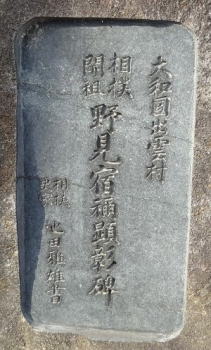 大和國出雲村
相撲
開祖
野見宿禰顕彰碑
相撲
史家
池田雅雄書